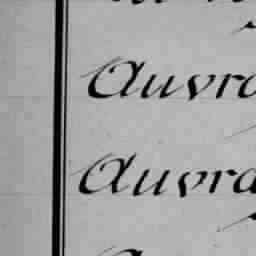 Auvra
Auvra